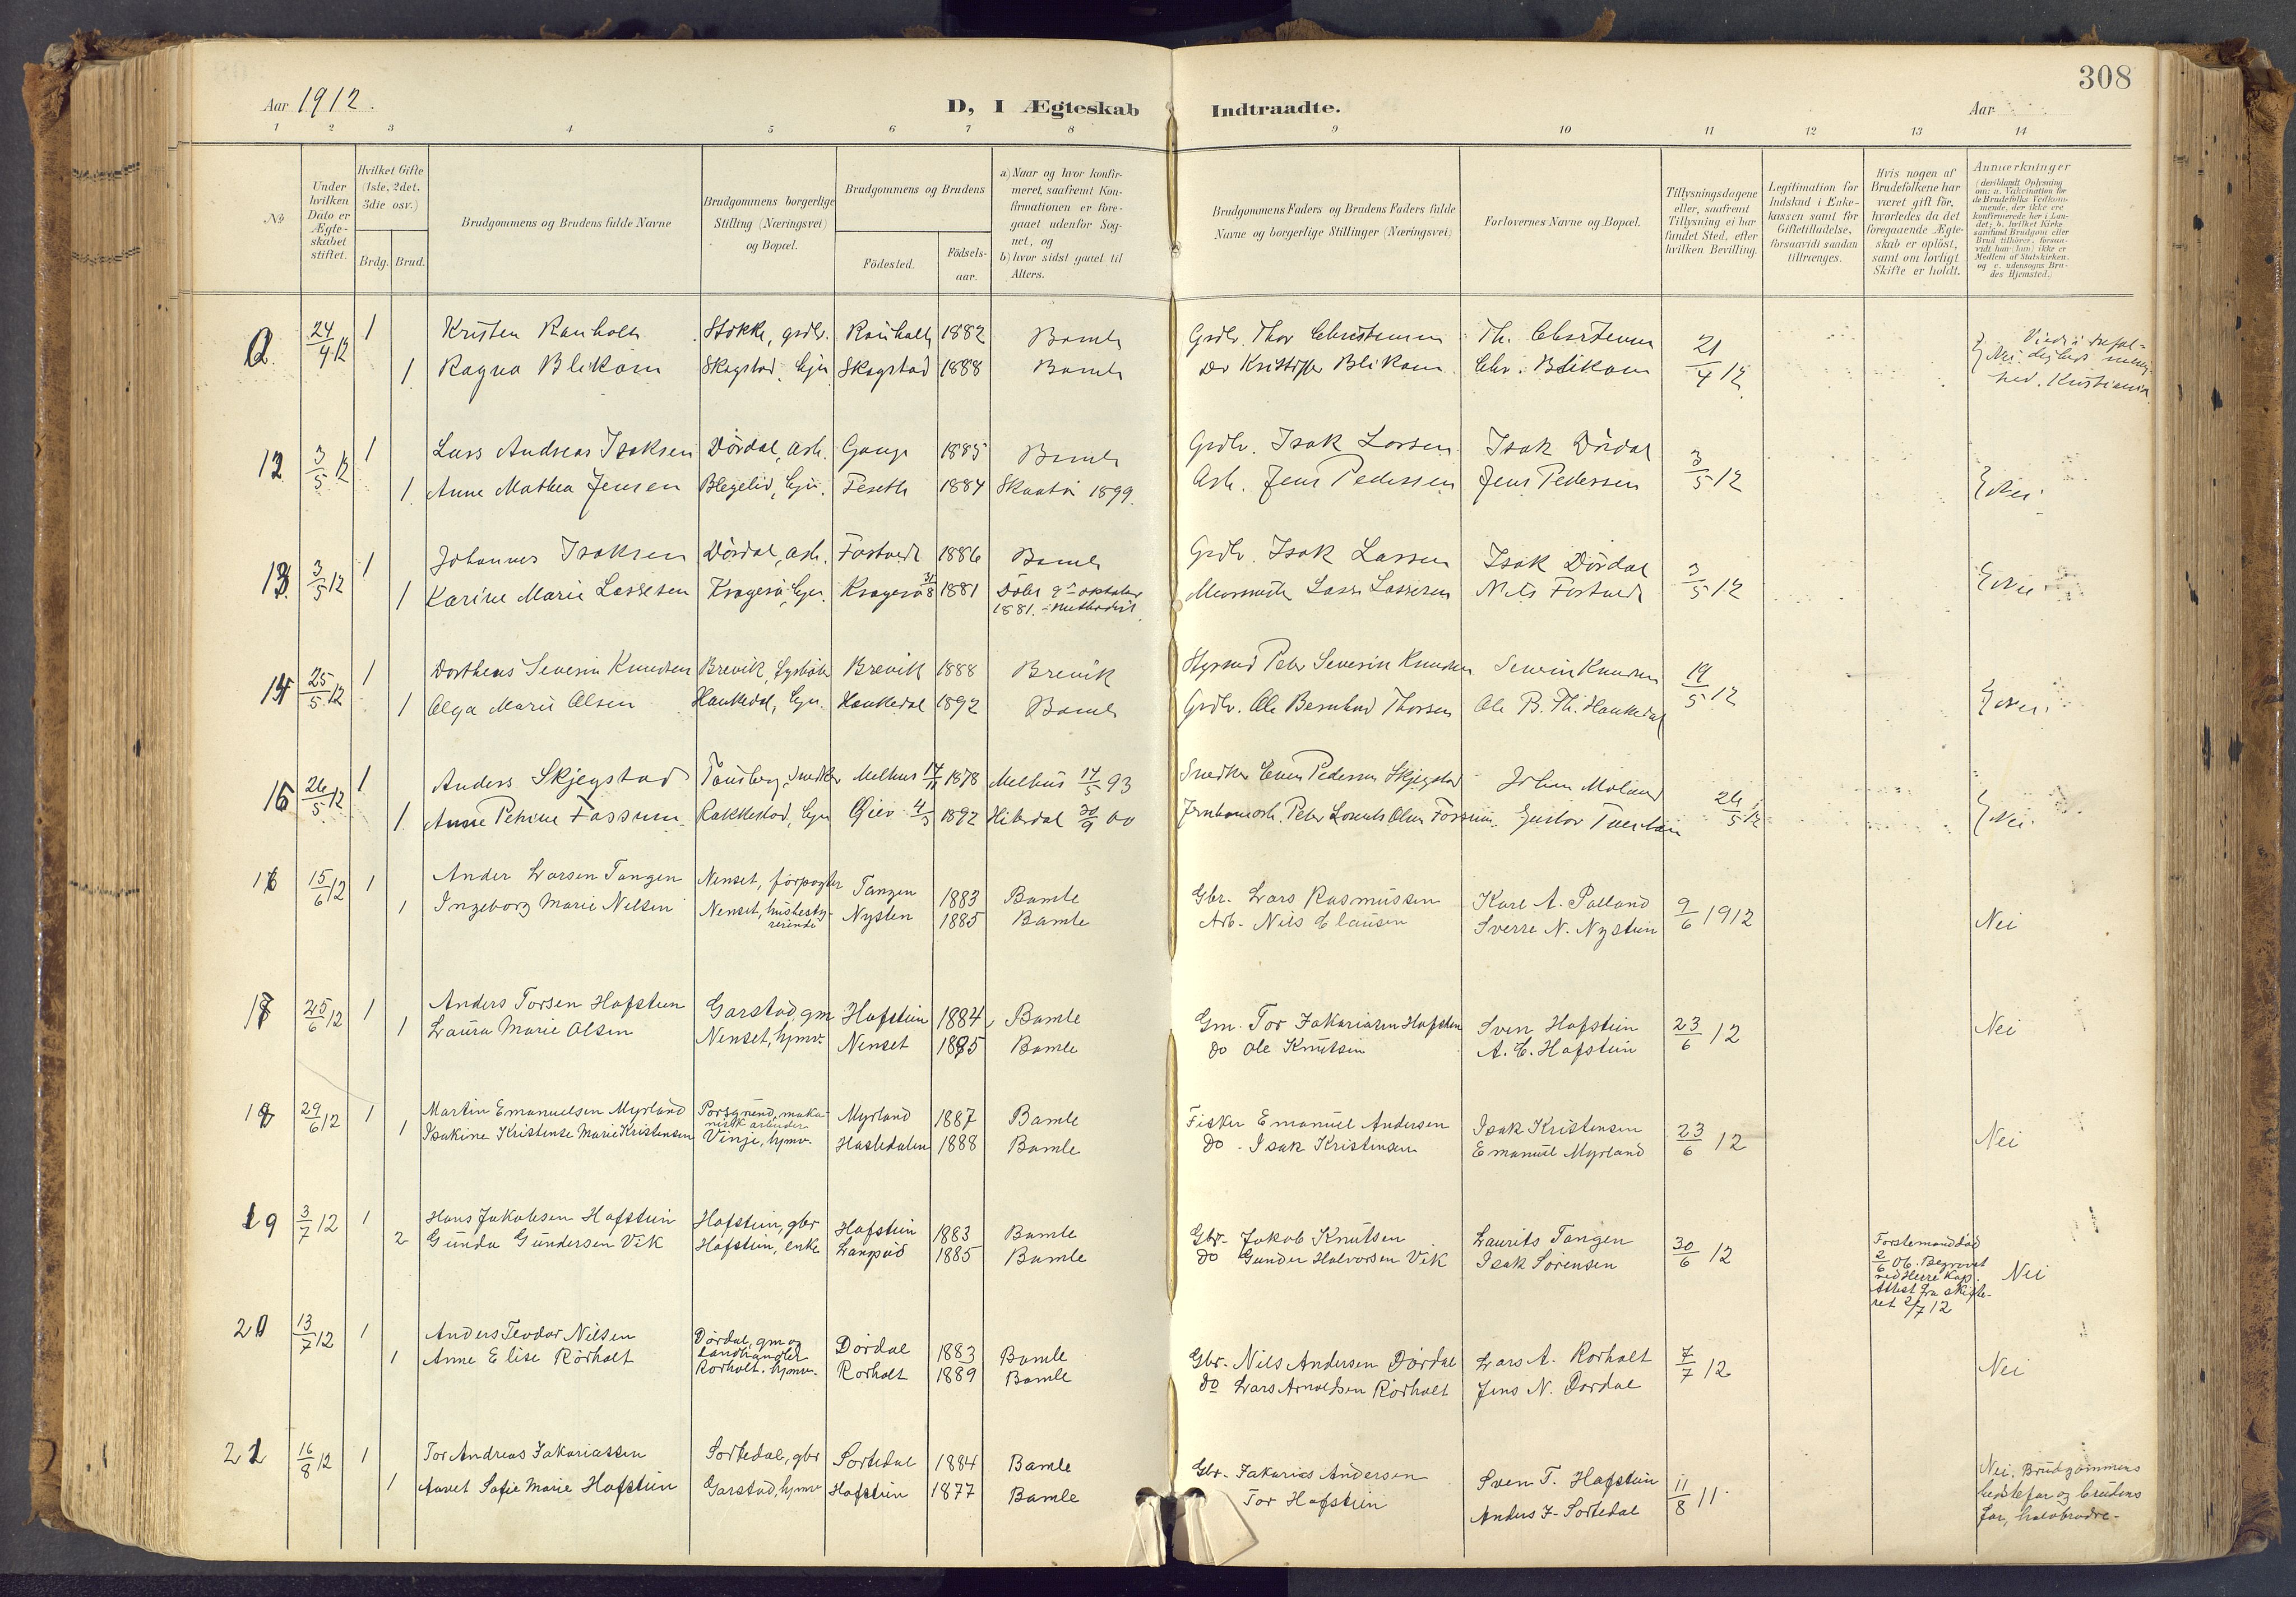 308
Aar 1912.
D, I Ægteskab Indtraadte.
Aar
1 2 3 4 5 6 7 8 9 10 11 12 13 14
№
Under hvilken Dato er Ægteskabet stiftet.
Hvilket Gifte (1ste, 2det, 3die osv.)
Brdg. Brud.
Brudgommens og Brudens fulde Navne
Brudgommens borgerlige Stilling (Næringsvei) og Bopæl.
Brudgommens og Brudens
Födested. Födsels-aar.
a) Naar og hvor konfirmeret, saafremt Konfirmationen er foregaaet udenfor Sognet, og
b) hvor sidst gaaet til Alters.
Brudgommens Faders og Brudens Faders fulde Navne og borgerlige Stillinger (Næringsvei)
Forlovernes Navne og Bopæl.
Tillysningsdagene eller, saafremt Tillysning ei har fundet Sted, efter hvilken Bevilling.
Legitimation for Indskud i Enkekassen samt for Giftetilladelse, forsaavidt saadan tiltrænges.
Hvis nogen af Brudefolkene har været gift för, hvorledes da det foregaaende Ægteskab er oplöst, samt om lovligt Skifte er holdt.
Anmærkninger
(deriblandt Oplysning om: a. Vakcination for de Brudefolks Vedkommende, der ikke ere konfirmerede her i Landet; b. hvilket Kirkesamfund Brudgom eller Brud tilhörer, forsaavidt han (hun) ikke er Medlem af Statskirken, og c. udensogns Brudes Hjemsted.)
24/4 12 1 Kristen Rønholt Stokke, grdbr. Rønholt 1882 Bamle Grdbr. Thor Christensen Th. Christensen 21/4 12
1 Ragna Blikom Skogstad, hjm Skogstad 1888 Bamle Do Kristoffer Blikom Chr. Blikom
12 3/5 12 1 Lars Andreas Isaksen Dördal, arb. 1885 Bamle Grdbr. Isak Larsen Isak Dördal 3/5 12
1 Anne Mathea Jensen Feseth 1884 Skaatö 1899. Arb. Jens Pedersen Jens Pedersen Nei.
13 3/5 12 1 Johannes Isaksen Dördal, arb. Fostvedt 1886 Bamle Grdbr. Isak Larsen Isak Dördal 3/5 12
1 Karine Marie Lassesen Kragerö, hjm. Kragerö 31/8 1881 Döbt 9de oktober 1881. Methodist. Lars Lassesen Nils Fostvedt Nei.
14 25/5 12 1 Dortheus Severin Knudsen Brevik, Brevik 1888 Brevik Styrmd Peter Severin Knudsen Severin Knudsen 19/5 12
1 Olga Marie Olsen Haukedal, hjm. Haukedal 1892 Bamle Grdbr. Ole Bernhard Thorsen Ole B. Th. Haukedal Nei.
15 26/5 12 1 Anders Skjegstad Tönsberg, snedker Melhus 17/11 1878 Melhus 14/5 93 Snedker Even Pedersen Skjegstad Johan Moland 26/5 12
1 Anne Petrine Fossum Rakkestad, hjm 4/5 1892 Hitterdal 30/9 00 Jernbanearb. Peter Lorents Olsen Fossum. Gustav Nei.
16 15/6 12 1 Ander Larsen Tangen Nenset, forpagter Tangen 1883 Bamle Gbr. Lars Rasmussen Karl A. Palland 9/6 1912
1 Ingeborg Marie Nilsen Nenset, husbestyrerinde Nysten 1885 Bamle Arb. Nils Clausen Sverre N. Nystein Nei
17 25/6 12 1 Anders Torsen Hafstein Garstad, gm Hafstein 1884 Bamle Gm. Tor Zakariasen Hafstein Sven Hafstein 23/6 12
1 Laura Marie Olsen Nenset, hjmv. Nenset 1885 Bamle do Ole Knutsen A. C. Hafstein Nei
18 29/6 12 1 Martin Emanuelsen Myrland Porsgrund, mekanisk arbeider Myrland 1887 Bamle Fisker Emanuel Andersen Isak Kristensen 23/6 12
1 Isakine Kristense Marie Kristensen Vinje, hjmv. Hasledalen 1888 Bamle do. Isak Kristensen Emanuel Myrland Nei
19 3/7 12 1 Hans Jakobsen Hafstein Hafstein, gbr Hafstein 1883 Bamle Gbr. Jakob Knutsen Laurits Tangen 30/6 12
2 Gunda Gundersen Vik Hafstein, enke Langsæd 1885 Bamle do Gunder Halvorsen Vik Isak Sörensen
Förstemand död 2/6 06. Begravet ved Herre Kap. Attest fra skifteret 2/7 12 Nei
20 13/7 12 1 Anders Teodor Nilsen Dördal, gm og landhandler Dördal 1883 Bamle Gbr. Nils Andersen Dördal Lars A. Rörholt 7/7 12
1 Anne Elise Rörholt Rörholt, hjmv. Rörholt 1889 Bamle do Lars Arnoldsen Rörholt Jens N. Dördal Nei
21 16/8 12 1 Tor Andreas Zakariassen Sortedal, gbr Sortedal 1884 Bamle Gbr. Zakarias Andersen Sven T. Hafstein 11/8 11
1 Anvet Sofie Marie Hafstein Garstad, hjmv Hafstein 1877 Bamle Tor Hafstein Anders Z. Sortedal
Nei. Brudgommens bedstefar og brudens far, halvbrødre.